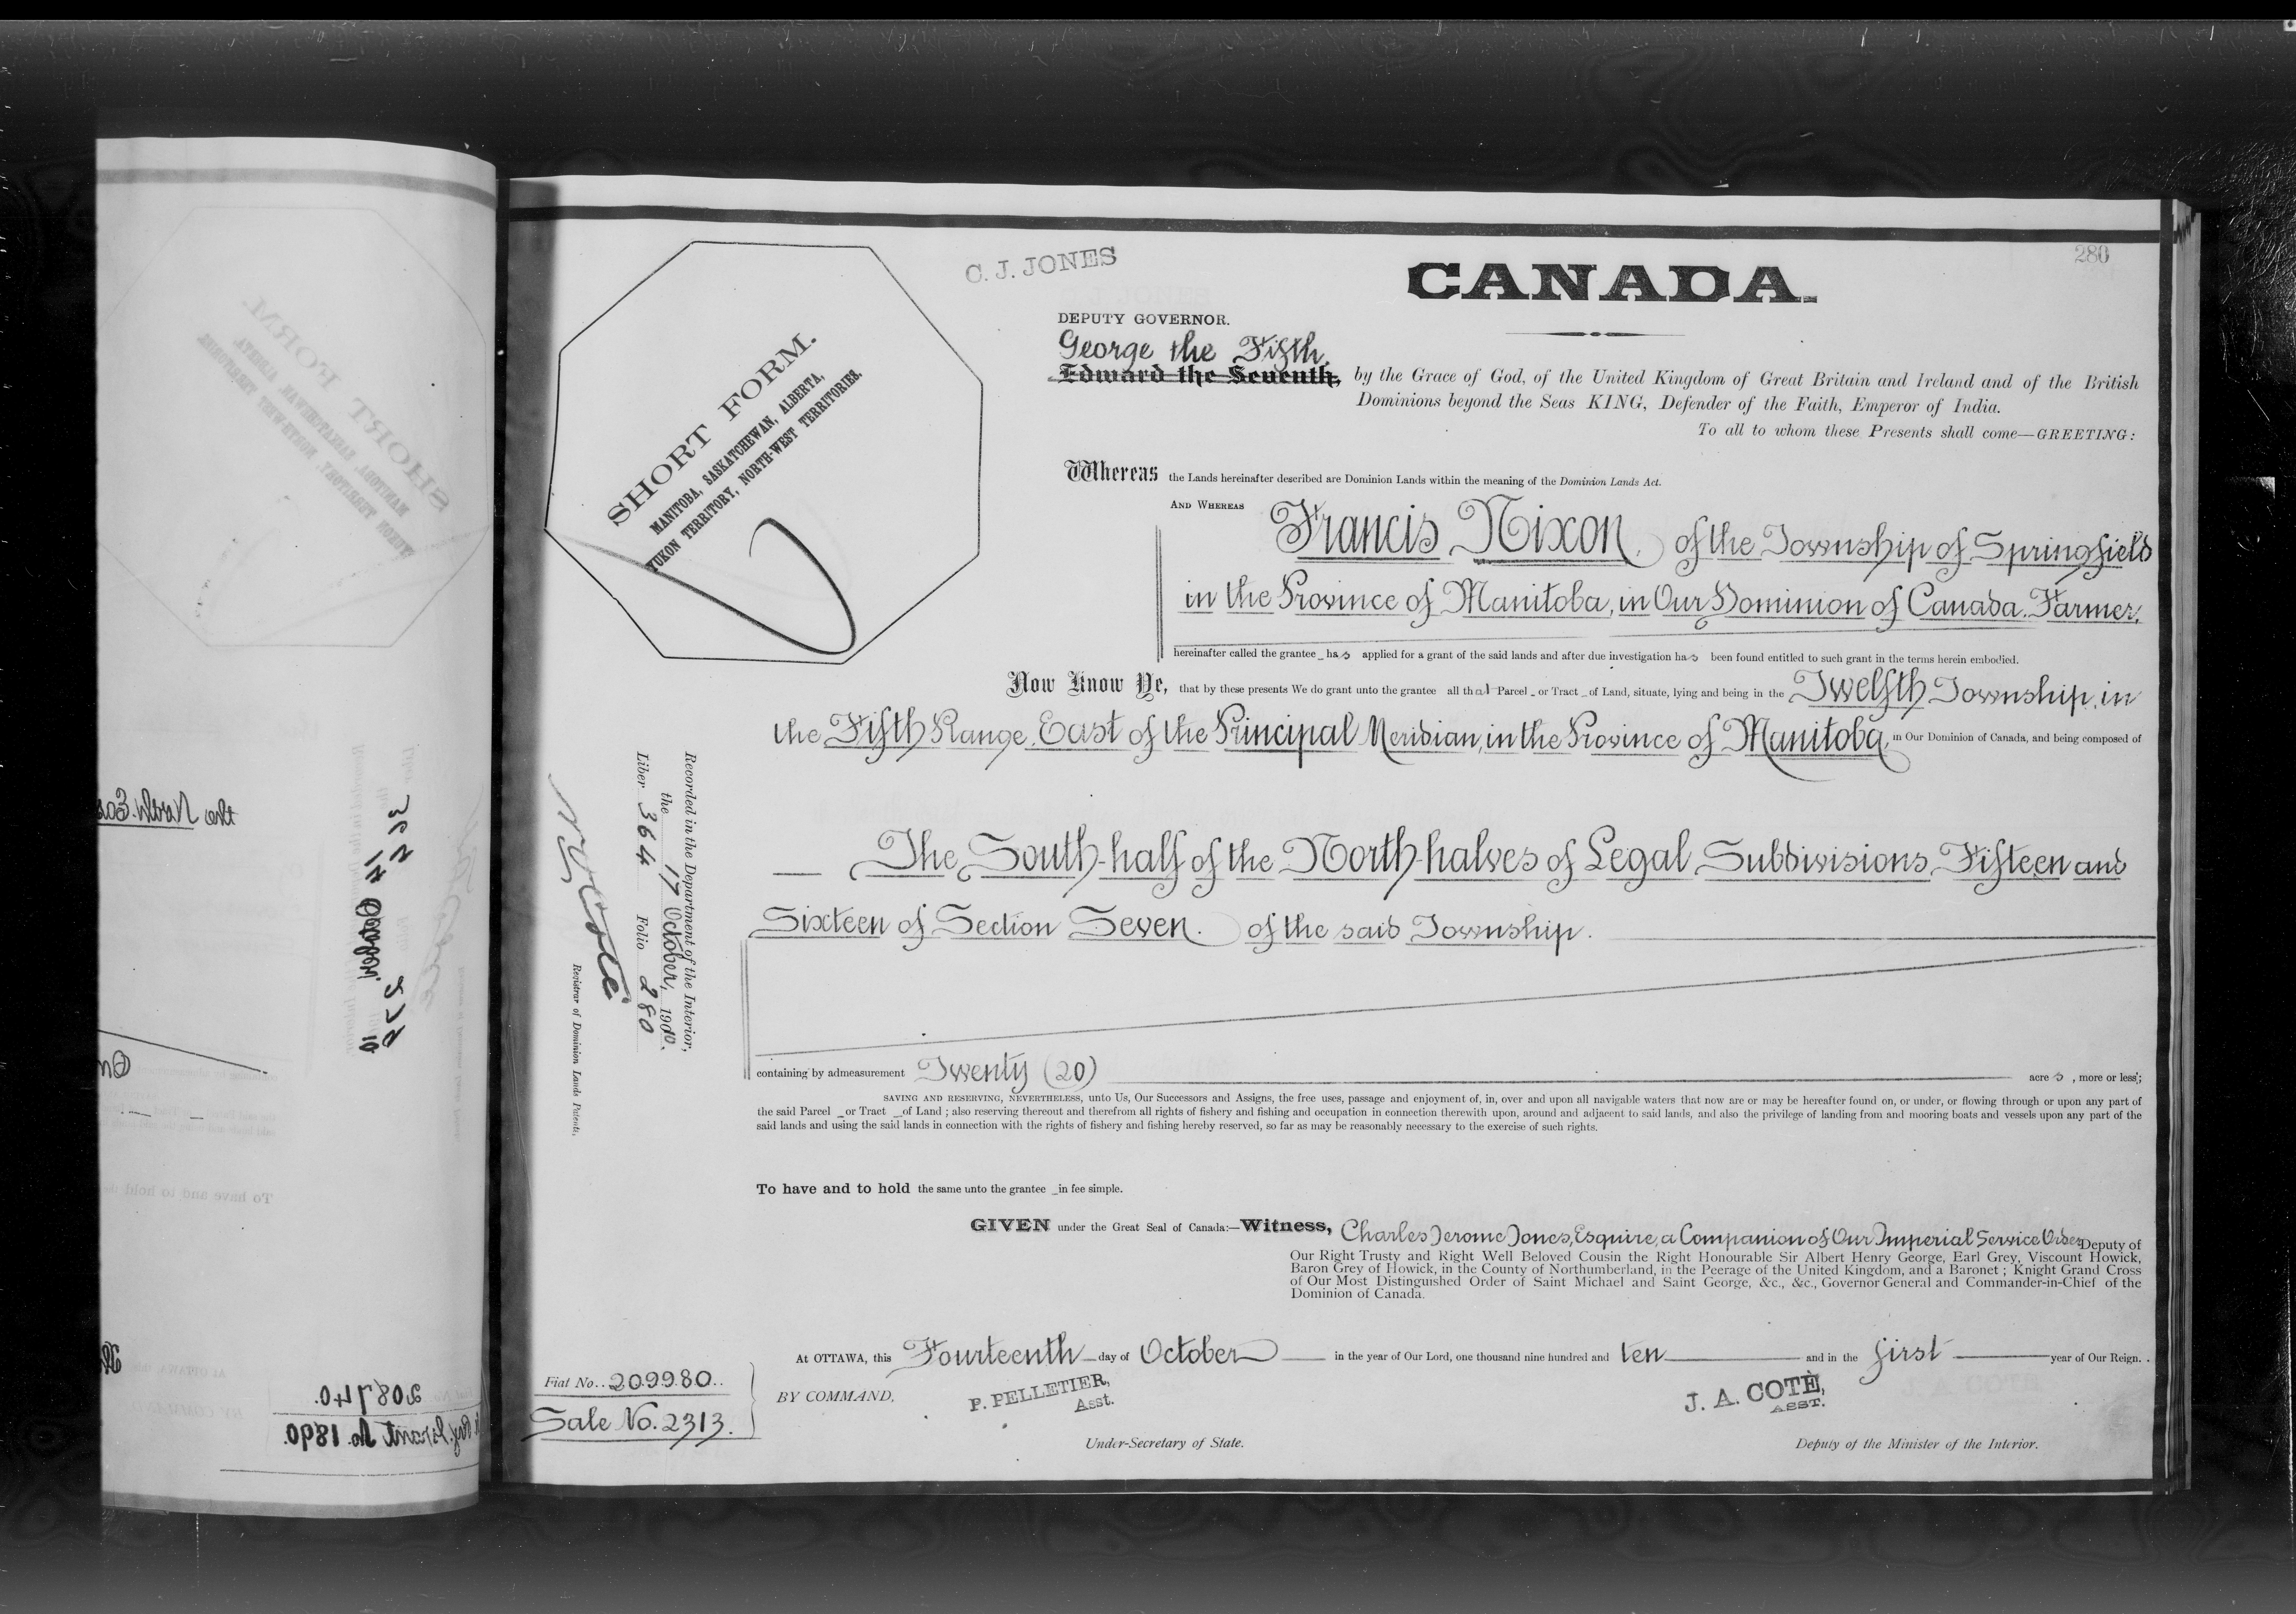 280
C. J. JONES
CANADA.
DEPUTY GOVERNOR.
George the Fifth,
Edward the Seventh, by the Grace of God, of the United Kingdom of Great Britain and Ireland and of the British
Dominions beyond the Seas KING, Defender of the Faith, Emperor of India.
To all to whom these Presents shall come—GREETING:
SHORT FORM.
MANITOBA, SASKATCHEWAN, ALBERTA,
YUKON TERRITORY, NORTH-WEST TERRITORIES.
Whereas the Lands hereinafter described are Dominion Lands within the meaning of the Dominion Lands Act.
AND WHEREAS Francis Nixon, of the Township of Springfield
in the Province of Manitoba, in Our Dominion of Canada. Farmer,
hereinafter called the grantee has applied for a grant of the said lands and after due investigation has been found entitled to such grant in the terms herein embodied.
Now Know Ye, that by these presents We do grant unto the grantee all that Parcel or Tract of Land, situate, lying and being in the Twelfth Township, in
the Fifth Range, East of the Principal Meridian, in the Province of Manitoba, in Our Dominion of Canada, and being composed of
The South-half of the North-halves of Legal Subdivisions Fifteen and
Sixteen of Section Seven. of the said Township.
Recorded in the Department of the Interior,
the 17 October, 1910.
Liber 364 Folio 280
Registrar of Dominion Lands Patents.
containing by admeasurement Twenty (20) acres, more or less;
SAVING AND RESERVING, NEVERTHELESS, unto Us, Our Successors and Assigns, the free uses, passage and enjoyment of, in, over and upon all navigable waters that now are or may be hereafter found on, or under, or flowing through or upon any part of
the said Parcel or Tract of Land; also reserving thereout and therefrom all rights of fishery and fishing and occupation in connection therewith upon, around and adjacent to said lands, and also the privilege of landing from and mooring boats and vessels upon any part of the
said lands and using the said lands in connection with the rights of fishery and fishing hereby reserved, so far as may be reasonably necessary to the exercise of such rights.
To have and to hold the same unto the grantee in fee simple.
GIVEN under the Great Seal of Canada:—Witness, Charles Jerome Jones, Esquire, a Companion of Our Imperial Service Order Deputy of
Our Right Trusty and Right Well Beloved Cousin the Right Honourable Sir Albert Henry George, Earl Grey, Viscount Howick,
Baron Grey of Howick, in the County of Northumberland, in the Peerage of the United Kingdom, and a Baronet; Knight Grand Cross
of Our Most Distinguished Order of Saint Michael and Saint George, &c., &c., Governor General and Commander-in-Chief of the
Dominion of Canada.
At OTTAWA, this Fourteenth day of October in the year of Our Lord, one thousand nine hundred and ten and in the first year of Our Reign.
Fiat No. 209980.
Sale No. 2313.
BY COMMAND,
P. PELLETIER,
Asst.
Under-Secretary of State.
J. A. COTÉ,
ASST.
Deputy of the Minister of the Interior.